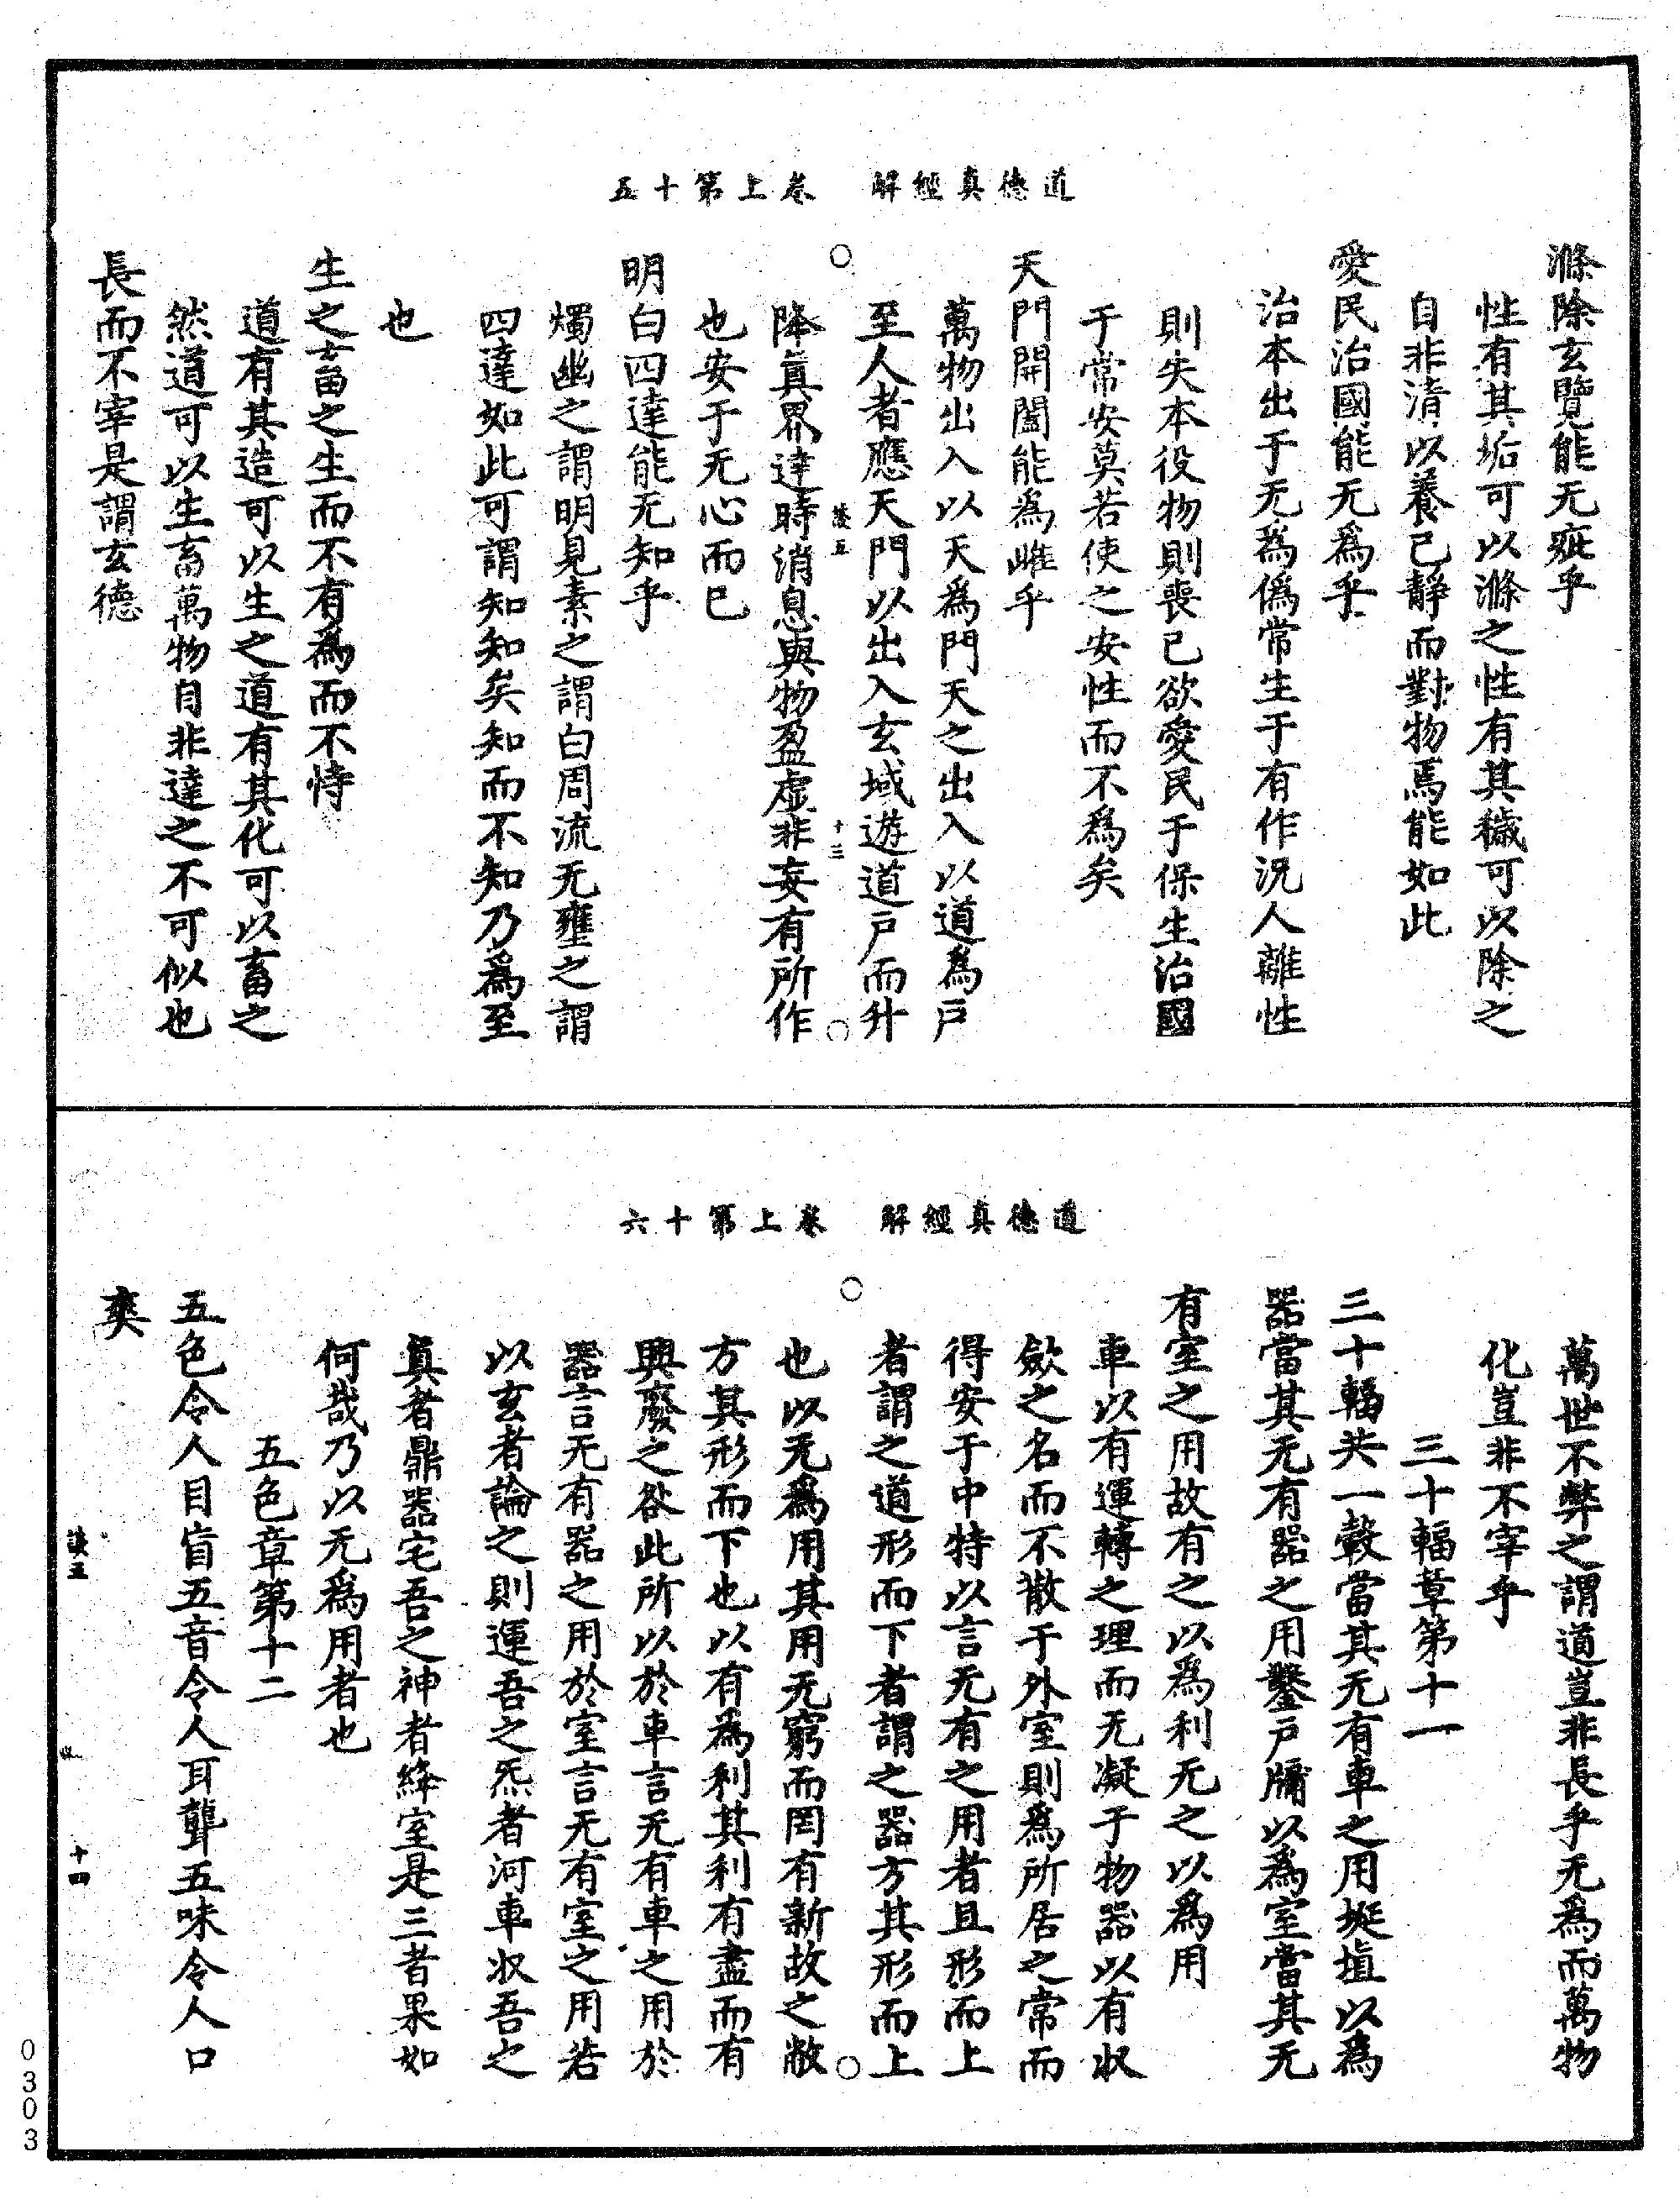 道德真經解　卷上第十五
滌除玄覽能无疵乎
性有其垢可以滌之性有其穢可以除之
自非清以養己靜而對物焉能如此
愛民治國能无爲乎
治本出于无爲偽常生于有作況人離性
則失本役物則喪已欲愛民于保生治國
于常安莫若使之安性而不爲矣
天門開闔能爲雌乎
萬物出入以天爲門天之出入以道爲戶
至人者應天門以出入玄域遊道戶而升
談五　十三
降真界達時消息與物盈虛非妄有所作
也安于无心而已
明白四達能无知乎
燭幽之謂明見素之謂白周流无壅之謂
四達如此可謂知知矣知而不知乃爲至
也
生之畜之生而不有爲而不恃
道有其造可以生之道有其化可以畜之
然道可以生畜萬物自非達之不可似也
長而不宰是謂玄德
道德真經解　卷上第十六
萬世不弊之謂道豈非長乎无爲而萬物
化豈非不宰乎
三十輻章第十一
三十輻共一轂當其无有車之用埏埴以爲
器當其无有器之用鑿戶牖以爲室當其无
有室之用故有之以爲利无之以爲用
車以有運轉之理而无凝于物器以有收
歛之名而不散于外室則爲所居之常而
得安于中特以言无有之用者且形而上
者謂之道形而下者謂之器方其形而上
也以无爲用其用无窮而罔有新故之敝
方其形而下也以有爲利其利有盡而有
興廢之咎此所以於車言无有車之用於
器言无有器之用於室言无有室之用若
以玄者論之則運吾之炁者河車收吾之
真者鼎器宅吾之神者絳室是三者果如
何哉乃以无爲用者也
五色章第十二
五色令人目盲五音令人耳聾五味令人口
爽
談五　十四
0303